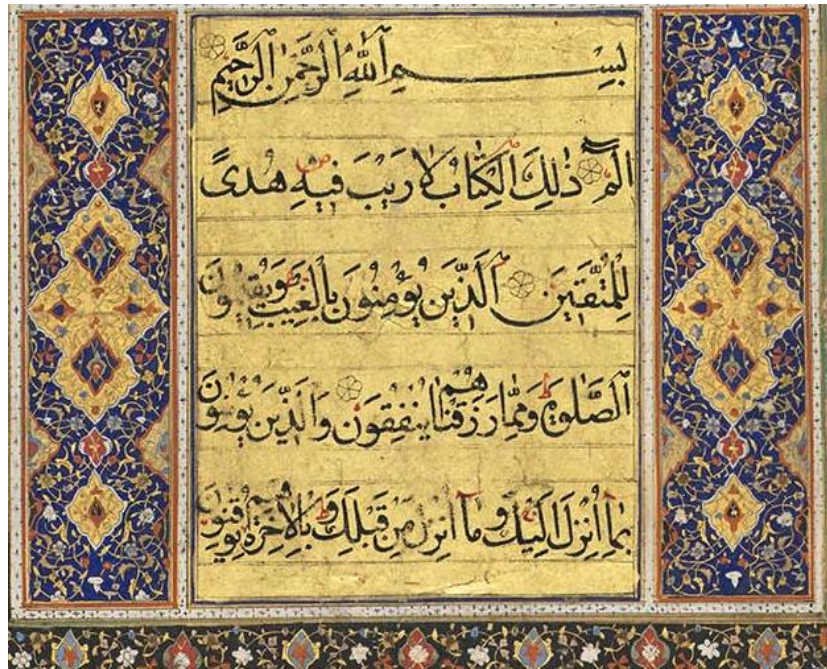 بِسْمِ ٱللَّهِ ٱلرَّحْمَٰنِ ٱلرَّحِيمِ
الٓمٓ ذَٰلِكَ الْكِتَٰابُ لَا رَيْبَ فِيهِ هُدًى
لِلْمُتَّقِينَ ٱلَّذِينَ يُؤْمِنُونَ بِالْغَيْبِ وَيُقِيمُونَ
ٱلصَّلَوٰةَ وَمِمَّا رَزَقْنَاهُمْ يُنْفِقُونَ وَالَّذِينَ يُؤْمِنُونَ
بِمَآ أُنْزِلَ إِلَيْكَ وَمَآ أُنْزِلَ مِنْ قَبْلِكَ وَبِالْآخِرَةِ هُمْ يُوقِنُونَ